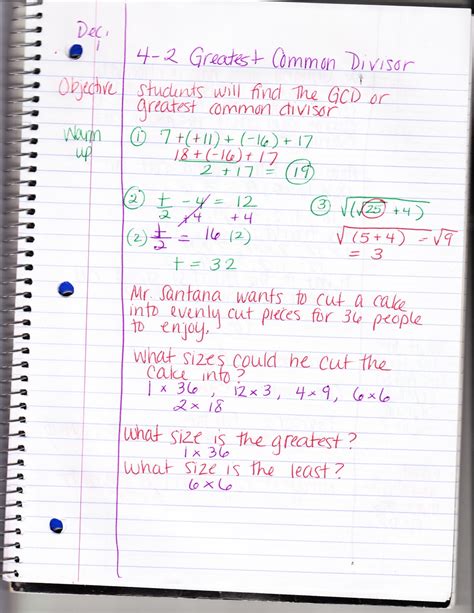 Dec.
1
4-2 Greatest Common Divisor
Objective students will find the GCD or
greatest common divisor
Warm up
① 7+(+11)+(-16)+17
18+(-16)+17
2+17 = 19
② t/2 - 4 = 12
+4 +4
(2) t/2 = 16 (2)
t = 32
③ √(√25 + 4)
√(5+4) - √9
= 3
Mr. Santana wants to cut a cake
into evenly cut pieces for 36 people
to enjoy.
What sizes could he cut the
cake into?
1 x 36, 12 x 3, 4 x 9, 6 x 6
2 x 18
What size is the greatest?
1 x 36
What size is the least?
6 x 6